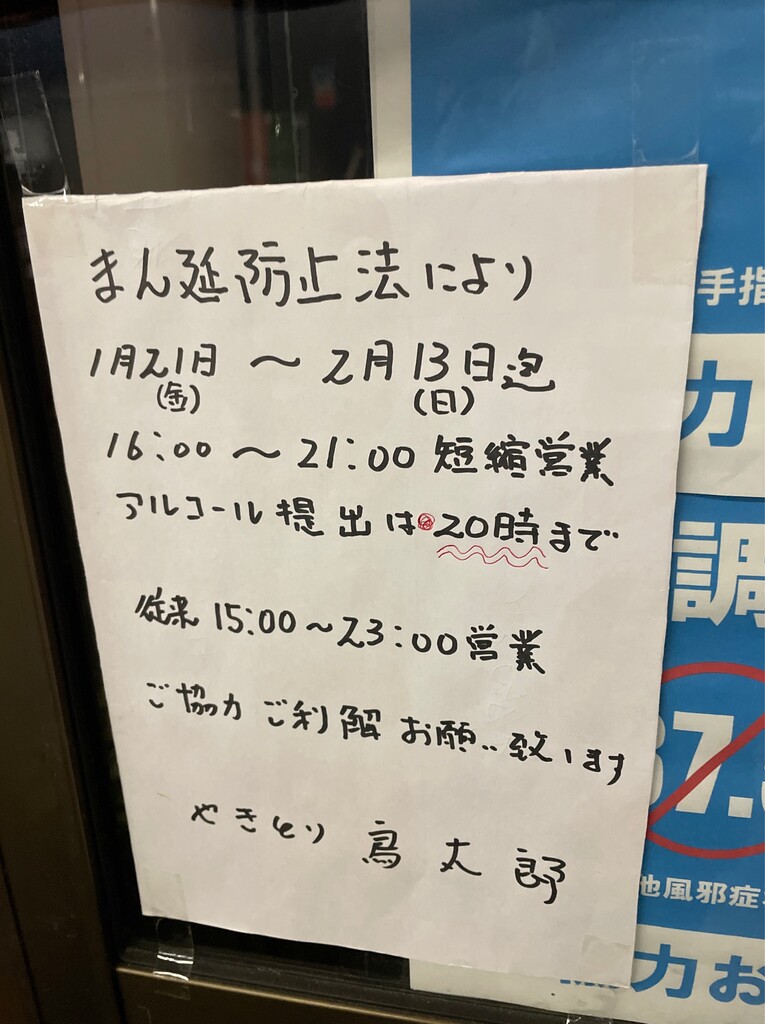 まん延防止法により
1月21日 ～ 2月13日迄
(金) (日)
16:00 ～ 21:00 短縮営業
アルコール提出は 20時まで
従来 15:00～23:00 営業
ご協力 ご利解 お願い致します
やきとり 鳥太郎
手指
力
調
37.
他風邪症
力お